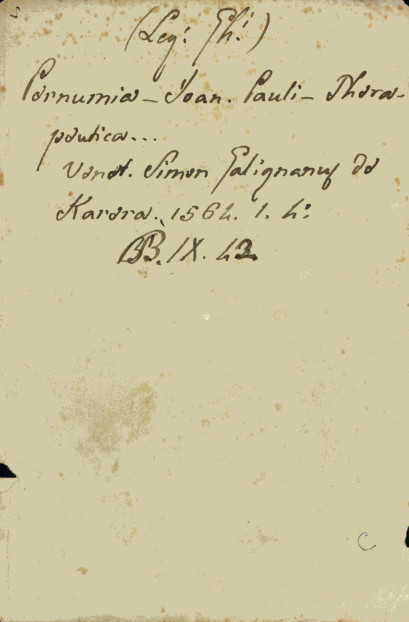 (Leg: Gh:)
Pernumia - Joan. Pauli - Thera-
peutica...
Venet. Simon Galignanus de
Karera. 1564. 1. 4:
BB. IX. 43